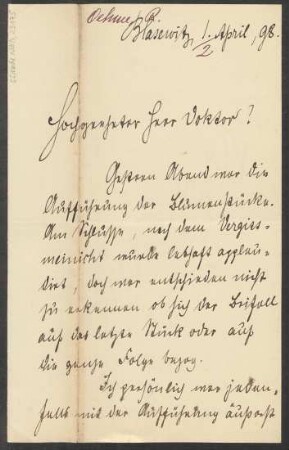 Oehme R.
Blasewitz, 1./2. April, 98.
Hochgeehrter Herr Doktor!
Gestern Abend war die
Aufführung der Blumenstücke.
Am Schlusse, nach dem Vergiss-
meinnicht wurde lebhaft applau-
dirt, doch war entschieden nicht
zu erkennen ob sich der Beifall
auf das letzte Stück oder auf
die ganze Folge bezog.
Ich persönlich war jeden-
falls mit der Aufführung äusserst